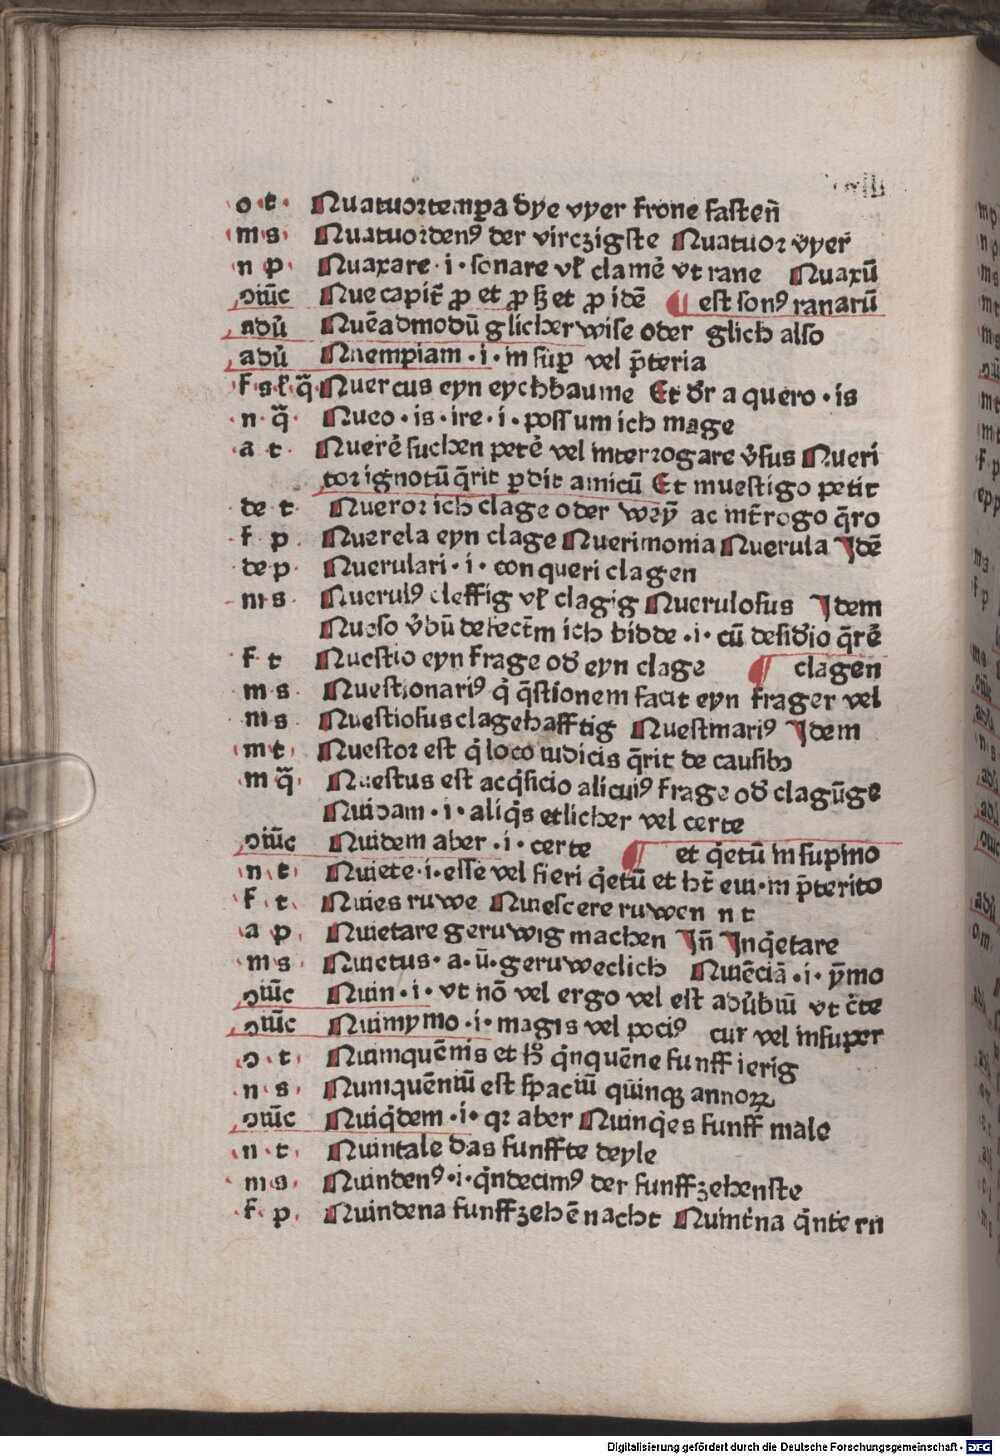 o t Nuatuortempora dye vyer frone fasten̄
m s Nuatuordenꝰ der virczigste Nuatuor vyer
n p Nuaxare · i · sonare vl̕ clamē vt rane Nuaxū
ↄiūc Nue capit̄ ꝓ et ꝓ hꝫ et ꝓ idē est sonꝰ ranarū
adu̕ Nuēadmodū glicher wise oder glich also
adu̕ Nuempiam · i · in suꝑ vel p̄teria
f s l̕ q̄ Nuercus eyn eychbaume Et dr̕ a quero · is
n q̄ Nueo · is · ire · i · possum ich mage
a t Nuerē suchen petē vel interrogare v̕sus Nueri
tor ignotū q̄rit ꝑdit amicū Et inuestigo petit
de t Nueror ich clage oder wey ac int̄rogo q̄ro
f p Nuerela eyn clage Nuerimonia Nuerula Idē
de p Nuerulari · i · conqueri clagen
m s Nuerulꝰ cleffig vl̕ clagig Nuerulosus Idem
Nueso v̕bū defect̄m ich bidde · i · cū desid̕io q̄rē
f t Nuestio eyn frage od̕ eyn clage clagen
m s Nuestionariꝰ q̕ q̄stionem facit eyn frager vel
m s Nuestiosus clagehafftig Nuestinariꝰ Idem
m t Nuestor est q̕ loco iudicis q̄rit de causibꝰ
m q̄ Nuestus est acq̕sicio alicuiꝰ frage od̕ clagūge
Nuidam · i · aliq̕s etlicher vel certe
ↄiūc Nuidem aber · i · certe et q̕etū in supino
n t Nuiete · i · esse vel fieri q̕etū et ht̄ eui · in p̄terito
f t Nuies ruwe Nuiescere ruwen n t
a p Nuietare geruwig machen In̄ Inq̕etare
m s Nuietus · a · ū · geruweclich Nuiēciā · i · ymo
ↄiūc Nuin · i · vt nō vel ergo vel est adu̕biū vt c̄te
ↄiūc Nuinymo · i · magis vel pociꝰ cur vel insuper
o t Nuinquēnis et hꝰ q̕nquēne funff ierig
n s Nuinquēniū est spaciū quinqꝫ annoꝝ
ↄiūc Nuiq̕dem · i · qꝛ aber Nuinq̕es funff male
n t Nuintale das funffte deyle
m s Nuindenꝰ · i · q̕ndecimꝰ der funffzehenste
f p Nuindena funffzehē nacht Nuint̕na q̕ntern
Digitalisierung gefördert durch die Deutsche Forschungsgemeinschaft - DFG